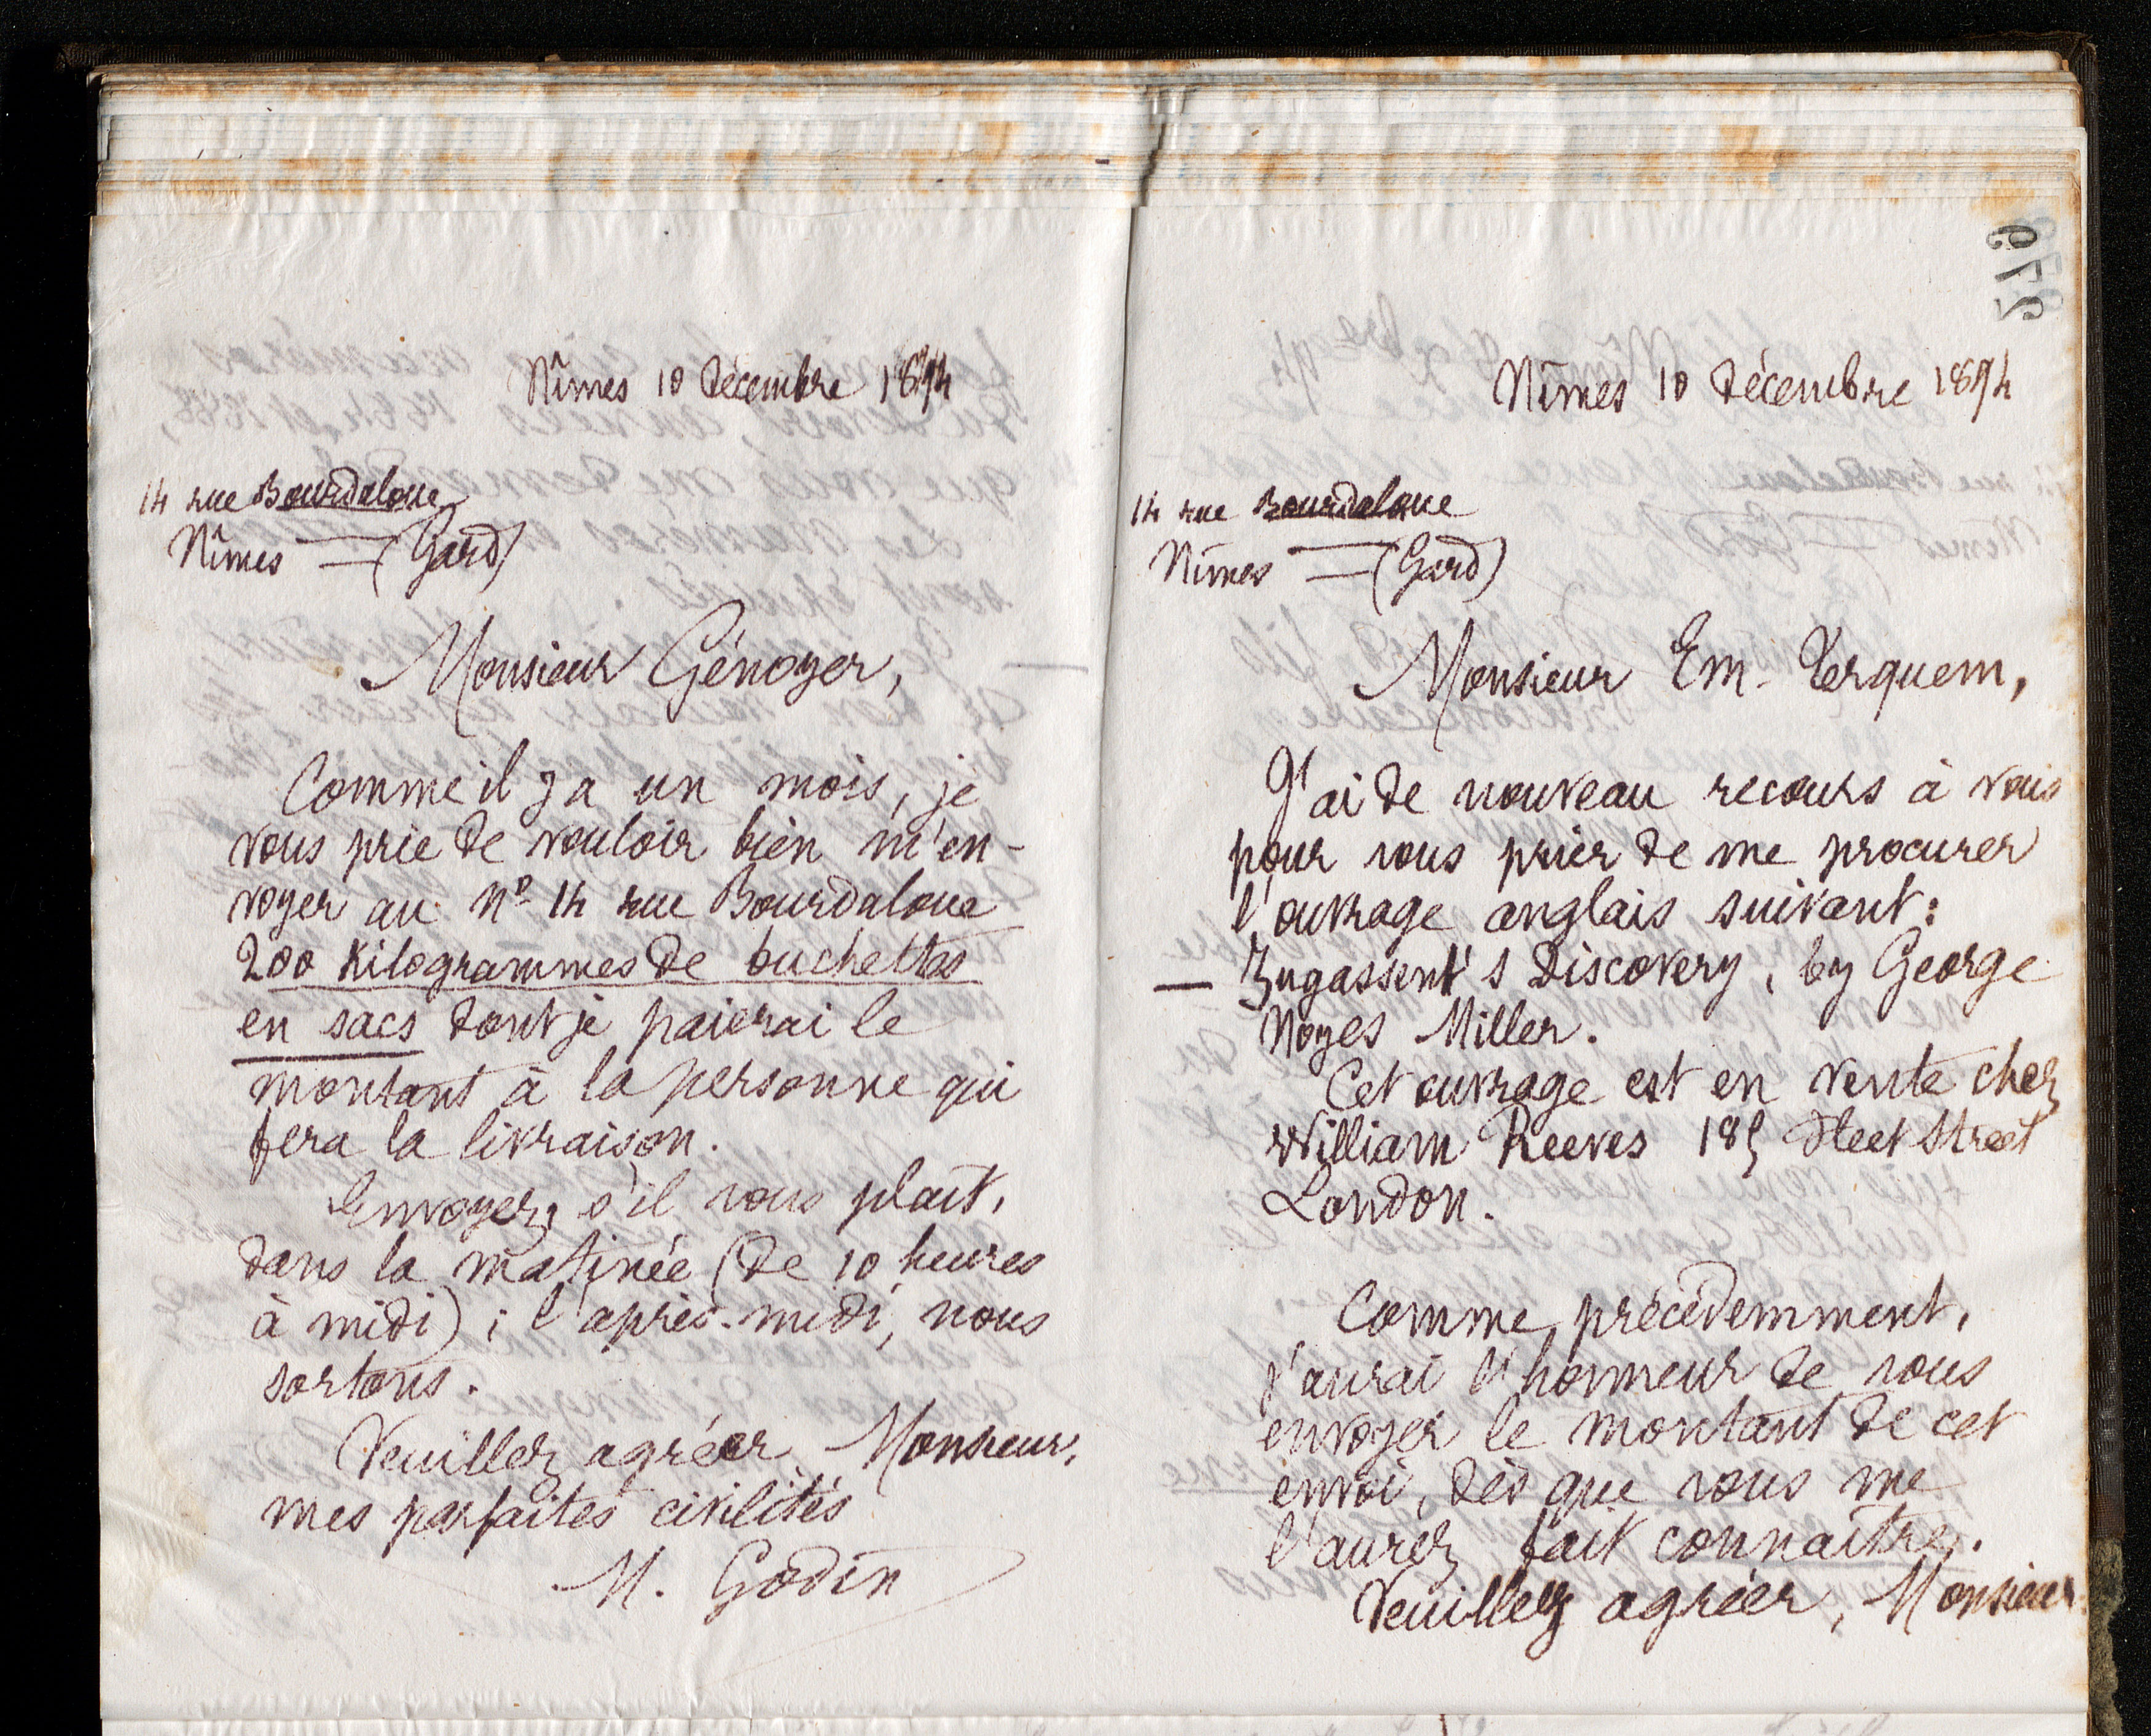 Nîmes 10 Décembre 1894
14 rue Bourdaloue
Nîmes — (Gard)
Monsieur Génoyer,
Comme il y a un mois, je
vous prie de vouloir bien m'en-
voyer au No 14 rue Bourdaloue
200 Kilogrammes de buchettes
en sacs dont je paierai le
montant à la personne qui
fera la livraison.
Envoyez, s'il vous plaît,
dans la matinée (de 10 heures
à midi) ; l'après-midi, nous
sortons.
Veuillez agréer Monsieur,
mes parfaites civilités
M. Godin
579
Nîmes 10 Décembre 1894
14 rue Bourdaloue
Nîmes — (Gard)
Monsieur Em. Terquem,
J'ai de nouveau recours à vous
pour vous prier de me procurer
l'ouvrage anglais suivant :
— Zugassent's Discovery, by George
Noyes Miller.
Cet ouvrage est en vente chez
William Reeves 185 Fleet Street
London.
Comme précédemment,
j'aurai l'honneur de vous
envoyer le montant de cet
envoi, dès que vous me
l'aurez fait connaître.
Veuillez agréer, Monsieur